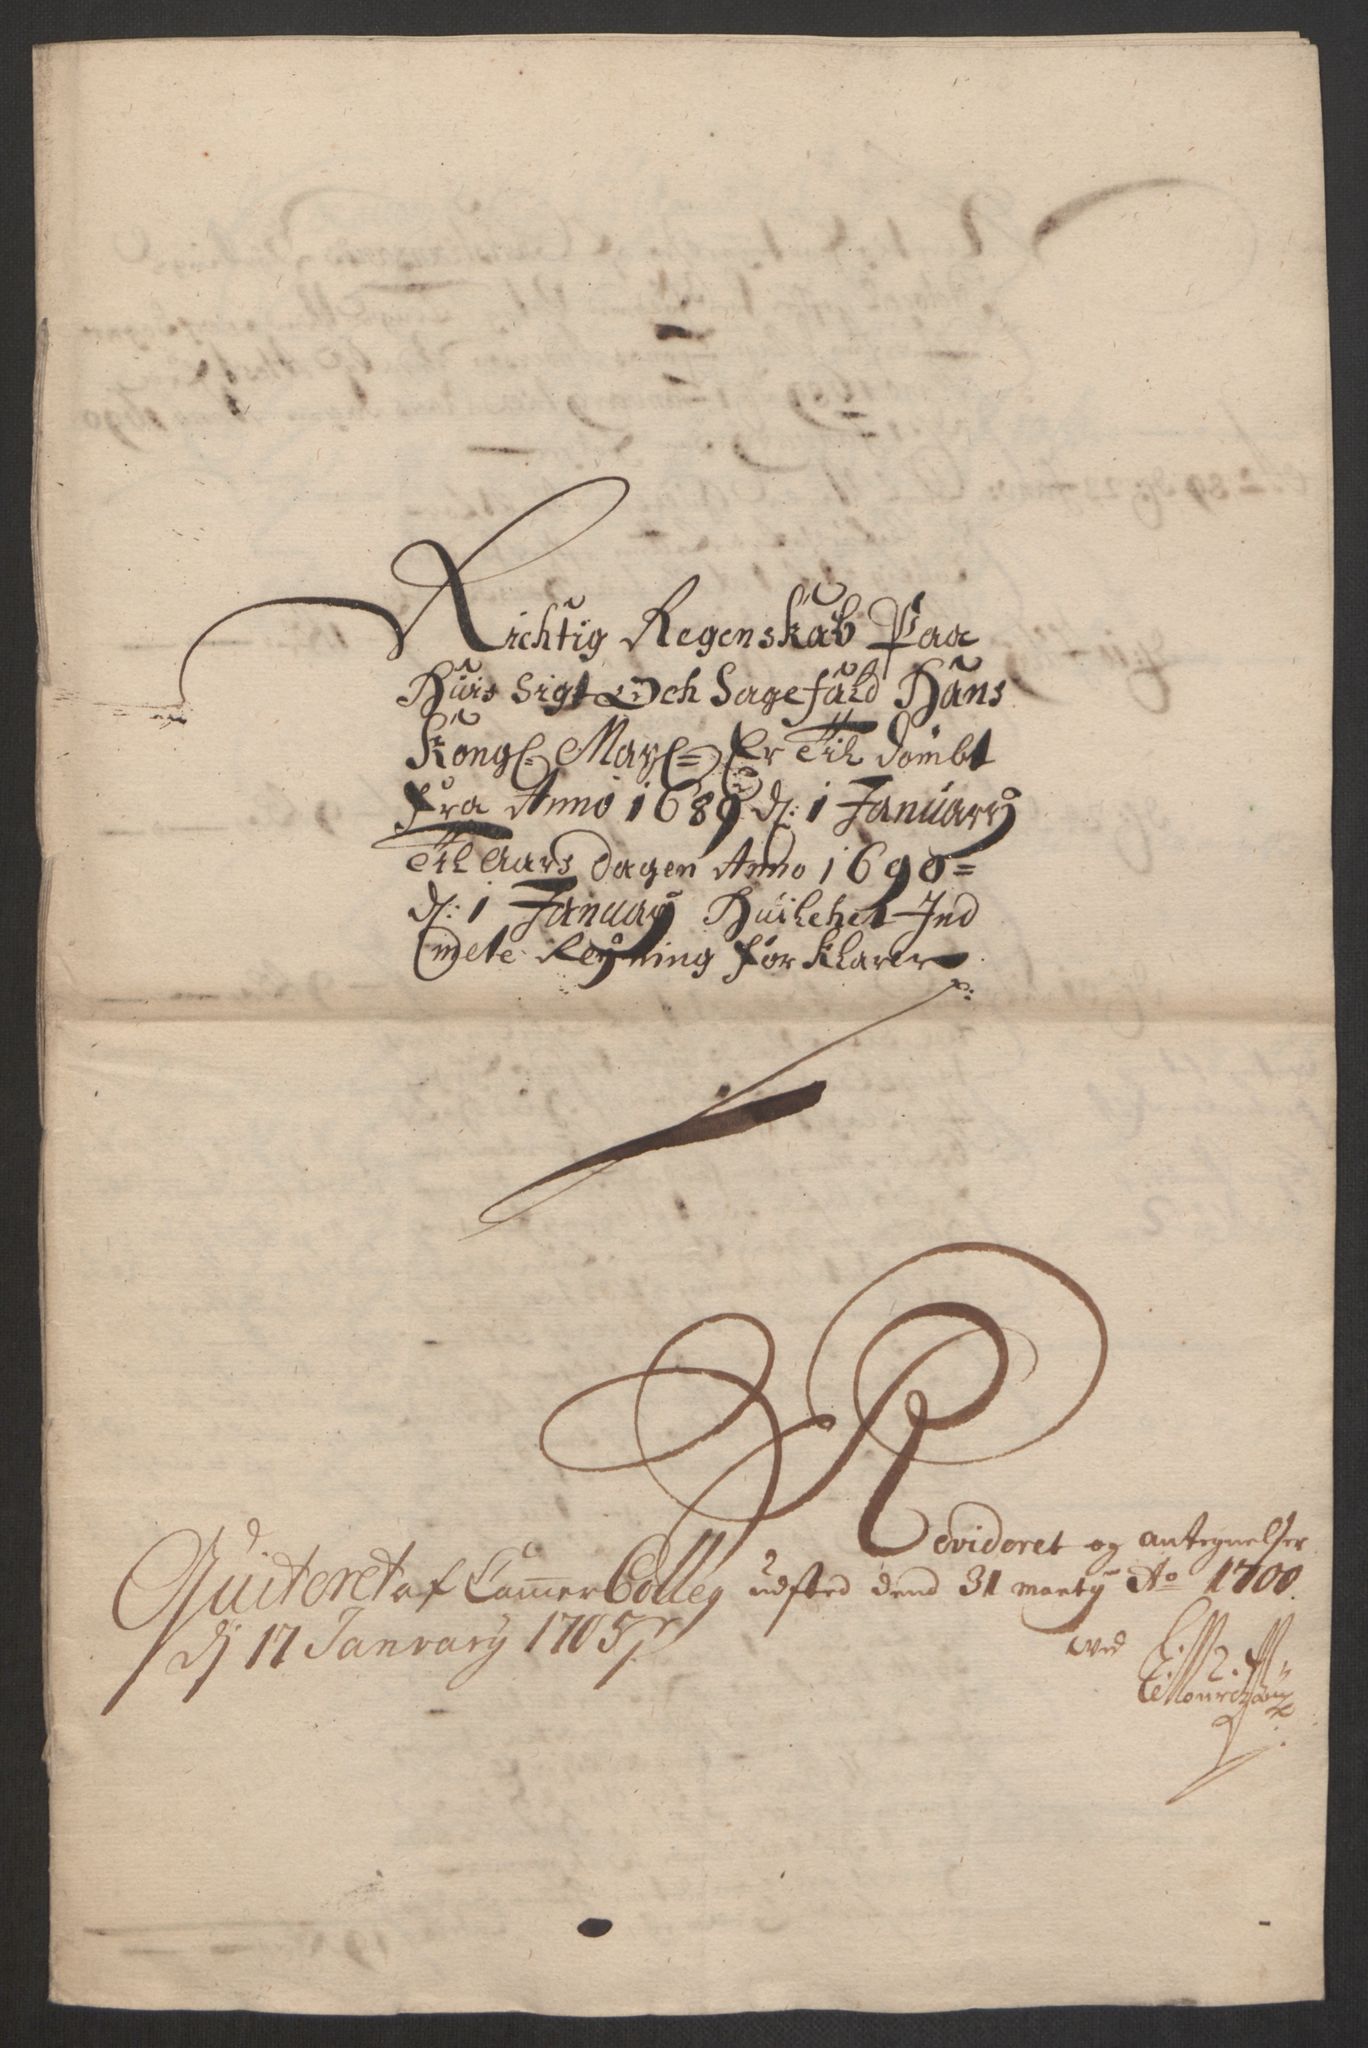 Richtig Regenskab Paa
Huis Sigt Och Sagefald Hans
Kongl. May: Er Til dömbt
Fra Anno 1689 d: 1 January
Til Aars dagen Anno 1690 =
d: 1 January Huilchet Ind
mete Regning forklarer
Revideret og antegnelser
udsted dend 31 marty Ao 1700.
ved
Quiteret af Cammer Colleg
dj 17 January 1705